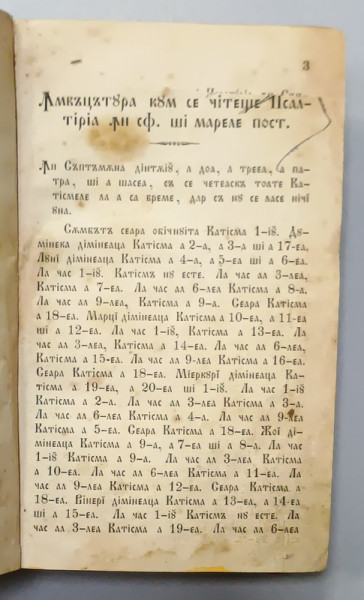 3
Ꙟмвъцътꙋра кꙋм се чітеще Псал-
тіріа ꙟн сф. ші мареле пост.
Ꙟн Съптъмѫна дінтѫіꙋ, а доа, а трееа, а па-
тра, ші а шасеа, съ се четеаскъ тоате Ка-
тісмеле ла а са време, дар съ нꙋ се ласе нічі
ꙋна.
Сѫмбътъ сеара обічнꙋіта Катісма 1-іꙋ. Дꙋ-
мінека дімінеаца Катісма а 2-а, а 3-а ші а 17-еа.
Лꙋні дімінеаца Катісма а 4-а, а 5-еа ші а 6-еа.
Ла час 1-іꙋ. Катісмъ нꙋ есте. Ла час ал 3-леа,
Катісма а 7-еа. Ла час ал 6-леа Катісма а 8-а.
Ла час ал 9-леа, Катісма а 9-а. Сеара Катісма
а 18-еа. Марці дімінеаца Катісма а 10-еа, а 11-еа
ші а 12-еа. Ла час 1-іꙋ, Катісма а 13-еа. Ла
час ал 3-леа, Катісма а 14-еа. Ла час ал 6-леа,
Катісма а 15-еа. Ла час ал 9-леа Катісма а 16-еа.
Сеара Катісма а 18-еа. Міеркꙋрі дімінеаца Ка-
тісма а 19-еа, а 20-еа ші 1-іꙋ. Ла час 1-іꙋ
Катісма а 2-а. Ла час ал 3-леа Катісма а 3-а.
Ла час ал 6-леа Катісма а 4-а. Ла час ал 9-леа
Катісма а 5-еа. Сеара Катісма а 18-еа. Жоі ді-
мінеаца Катісма а 9-а, а 7-еа ші а 8-а. Ла час
1-іꙋ Катісма а 9-а. Ла час ал 3-леа Катісма
а 10-еа. Ла час ал 6-леа Катісма а 11-еа. Ла
час ал 9-леа Катісма а 12-еа. Сеара Катісма а
18-еа. Вінері дімінеаца Катісма а 13-еа, а 14-еа
ші а 15-еа. Ла час 1-іꙋ Катісмъ нꙋ есте. Ла
час ал 3-леа Катісма а 19-еа. Ла час ал 6-леа